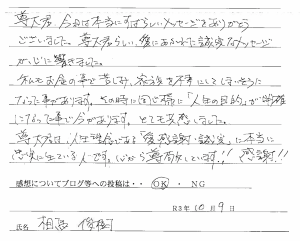 尊大君 今日は本当にすばらしいメッセージをありがとう
ございました。尊大君らしい、愛にあふれた誠実なメッセージ
が心に響きました。
私もお金の事で苦しみ、家族を不幸にしてしまいそうに
なった事があります。その時に同じ様に「人生の目的」が明確
になった事があります。とても共感しました。
尊大君は、人生理念である「愛、感謝、誠実」に本当に
忠実に生きている人です。心から尊敬しています!! 感謝!!
感想についてブログ等への投稿は・・ OK ・ NG
R3年10月9日
氏名 相馬 俊樹